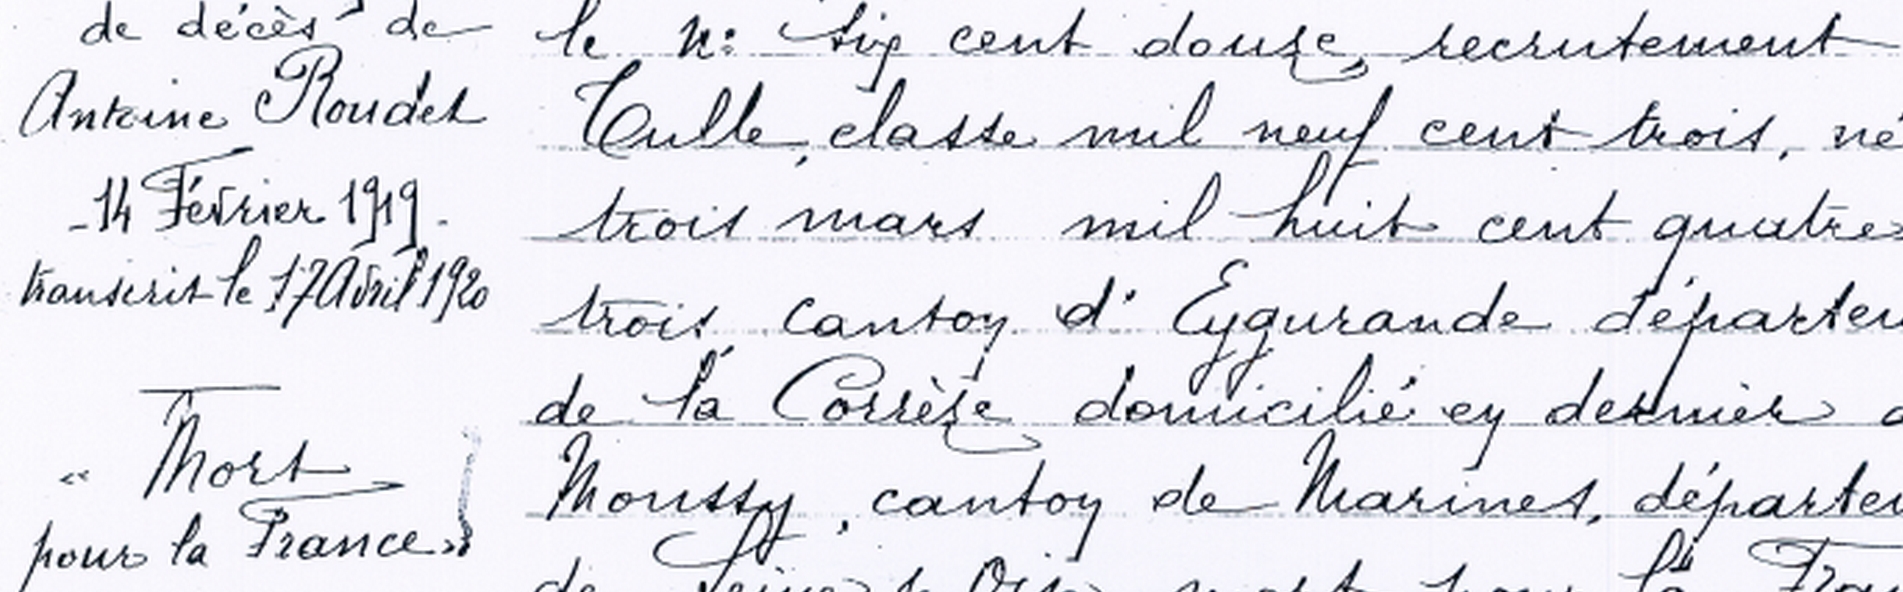 de décès de
Antoine Roudet
- 14 Février 1919 -
transcrit le 17 Avril 1920
« Mort
pour la France »
le n: six cent douze, recrutement
Tulle, classe mil neuf cent trois, né
trois mars mil huit cent quatre
trois, canton d'Eygurande départem
de la Corrèze domicilié en dernier
Moussy, canton de Marines, départem
de Seine & Oise mort pour la